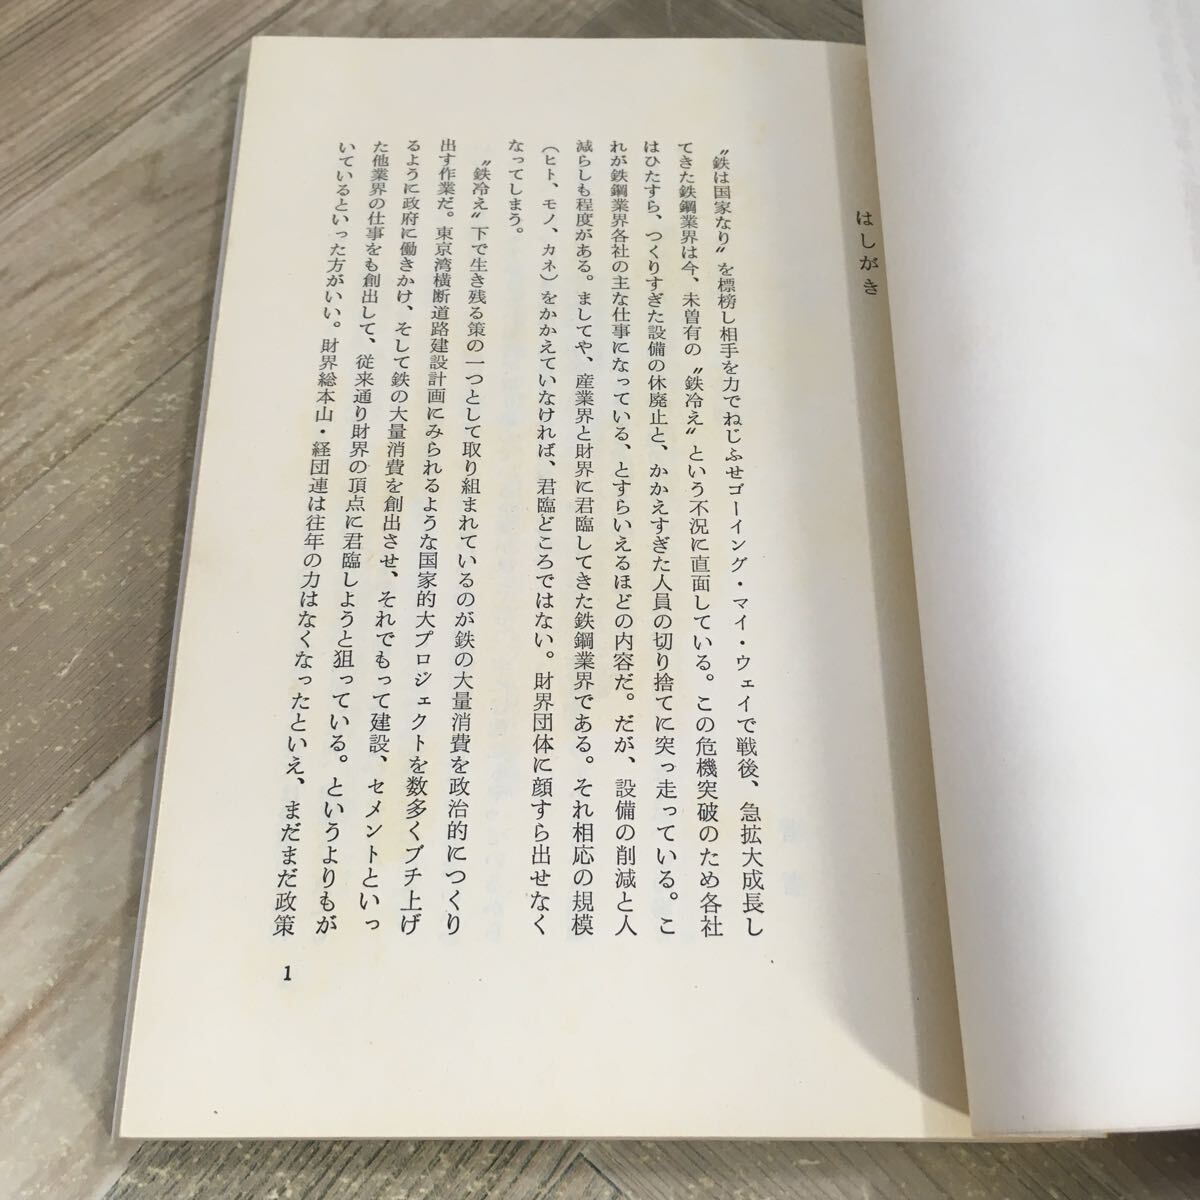 はしがき
〝鉄は国家なり〟を標榜し相手を力でねじふせゴーイング・マイ・ウェイで戦後、急拡大成長し
てきた鉄鋼業界は今、未曽有の〝鉄冷え〟という不況に直面している。この危機突破のため各社
はひたすら、つくりすぎた設備の休廃止と、かかえすぎた人員の切り捨てに突っ走っている。こ
れが鉄鋼業界各社の主な仕事になっている、とすらいえるほどの内容だ。だが、設備の削減と人
減らしも程度がある。ましてや、産業界と財界に君臨してきた鉄鋼業界である。それ相応の規模
（ヒト、モノ、カネ）をかかえていなければ、君臨どころではない。財界団体に顔すら出せなく
なってしまう。
〝鉄冷え〟下で生き残る策の一つとして取り組まれているのが鉄の大量消費を政治的につくり
出す作業だ。東京湾横断道路建設計画にみられるような国家的大プロジェクトを数多くブチ上げ
るように政府に働きかけ、そして鉄の大量消費を創出させ、それでもって建設、セメントといっ
た他業界の仕事をも創出して、従来通り財界の頂点に君臨しようと狙っている。というよりもが
いているといった方がいい。財界総本山・経団連は往年の力はなくなったといえ、まだまだ政策
1